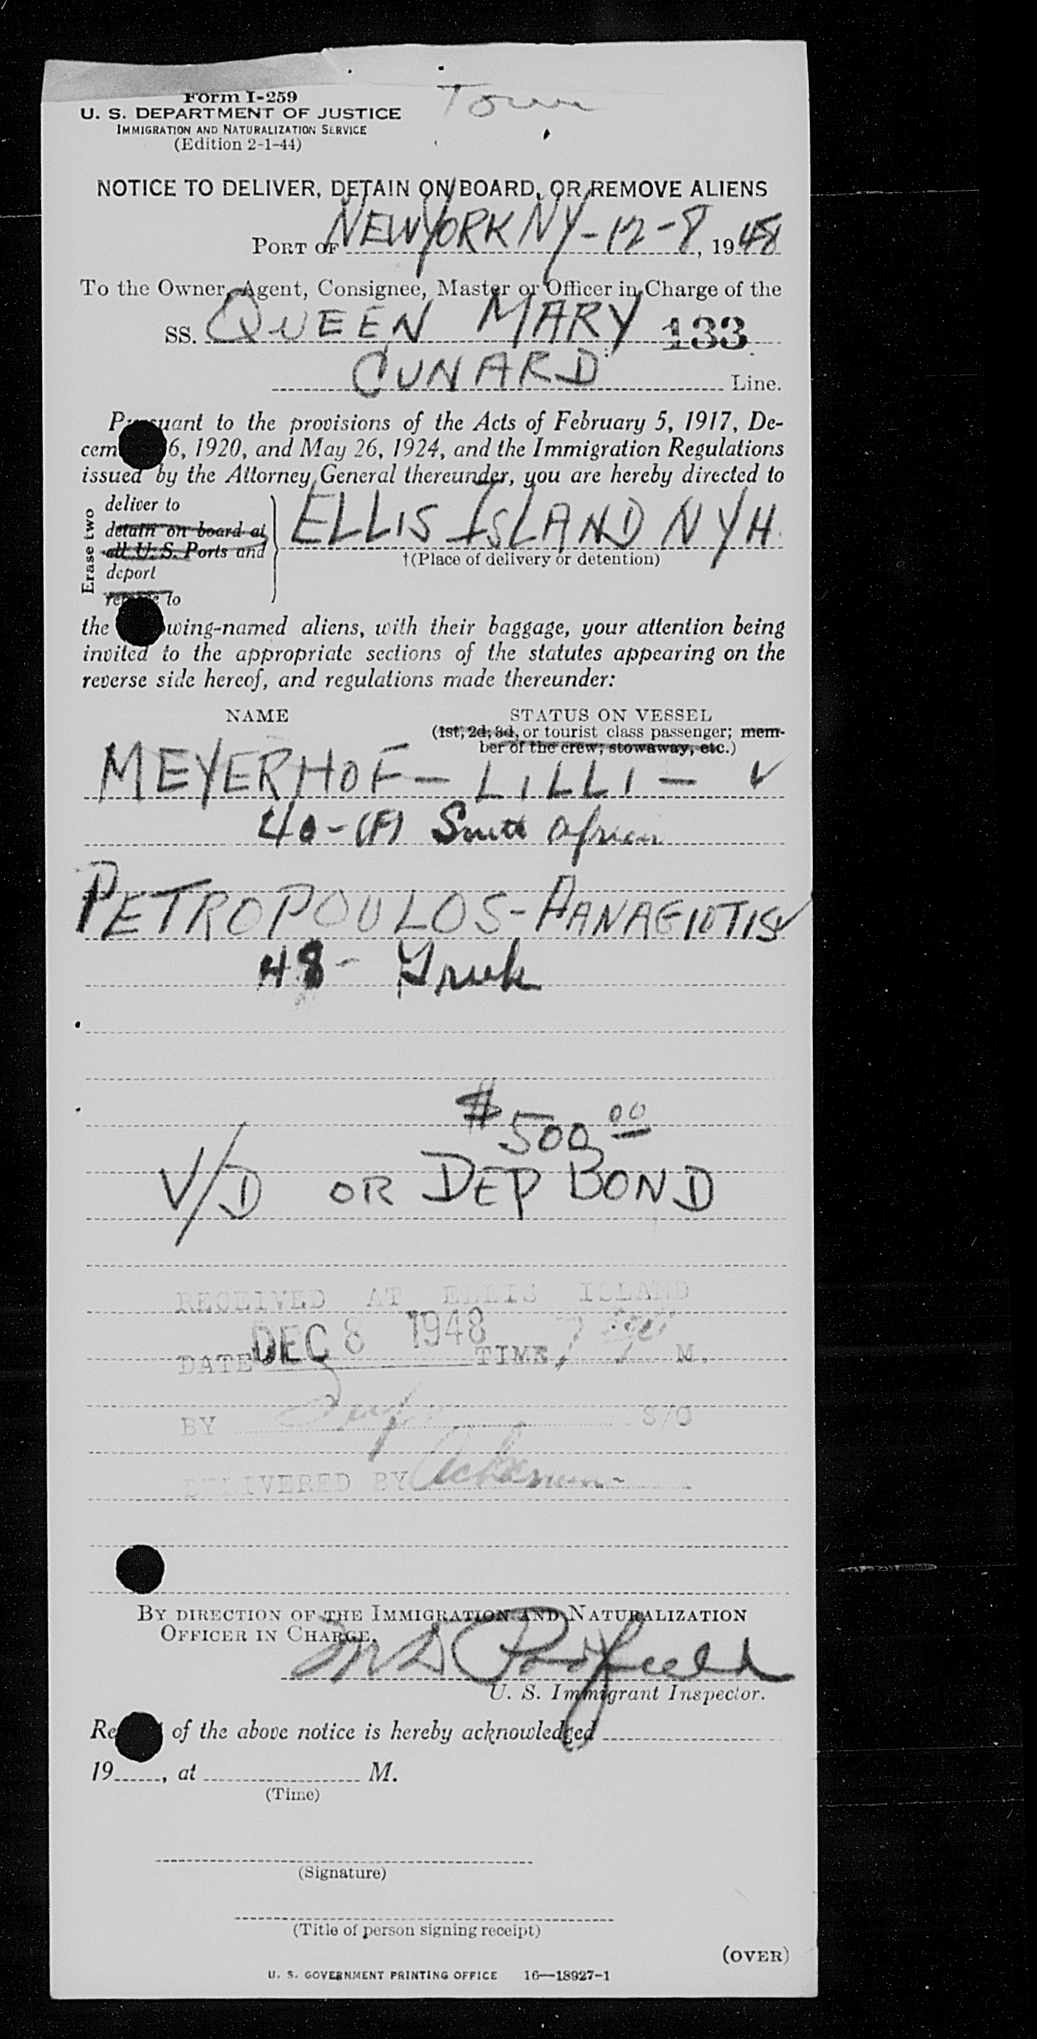 Form I-259
U. S. DEPARTMENT OF JUSTICE
IMMIGRATION AND NATURALIZATION SERVICE
(Edition 2-1-44)
NOTICE TO DELIVER, DETAIN ON BOARD, OR REMOVE ALIENS
PORT OF NEW YORK NY - 12 - 8, 1948
To the Owner, Agent, Consignee, Master or Officer in Charge of the
SS. QUEEN MARY 133
CUNARD Line.
Pursuant to the provisions of the Acts of February 5, 1917, De-
cem 6, 1920, and May 26, 1924, and the Immigration Regulations
issued by the Attorney General thereunder, you are hereby directed to
Erase two
deliver to
detain on board at
all U. S. Ports and
deport
to
ELLIS ISLAND NYH
†(Place of delivery or detention)
the wing-named aliens, with their baggage, your attention being
invited to the appropriate sections of the statutes appearing on the
reverse side hereof, and regulations made thereunder:
NAME STATUS ON VESSEL
(1st, 2d, 3d, or tourist class passenger; mem-
ber of the crew; stowaway, etc.)
MEYERHOF - LILLI - ✓
40 - (F) South African
PETROPOULOS - PANAGIOTIS ✓
48 - Greek
$500.00
V/D OR DEP BOND
RECEIVED AT ELLIS ISLAND
DATE DEC 8 1948 TIME M.
BY S/O
DELIVERED BY
BY DIRECTION OF THE IMMIGRATION AND NATURALIZATION
OFFICER IN CHARGE.
U. S. Immigrant Inspector.
Re of the above notice is hereby acknowledged
19, at M.
(Time)
(Signature)
(Title of person signing receipt)
(OVER)
U. S. GOVERNMENT PRINTING OFFICE 16—18927-1